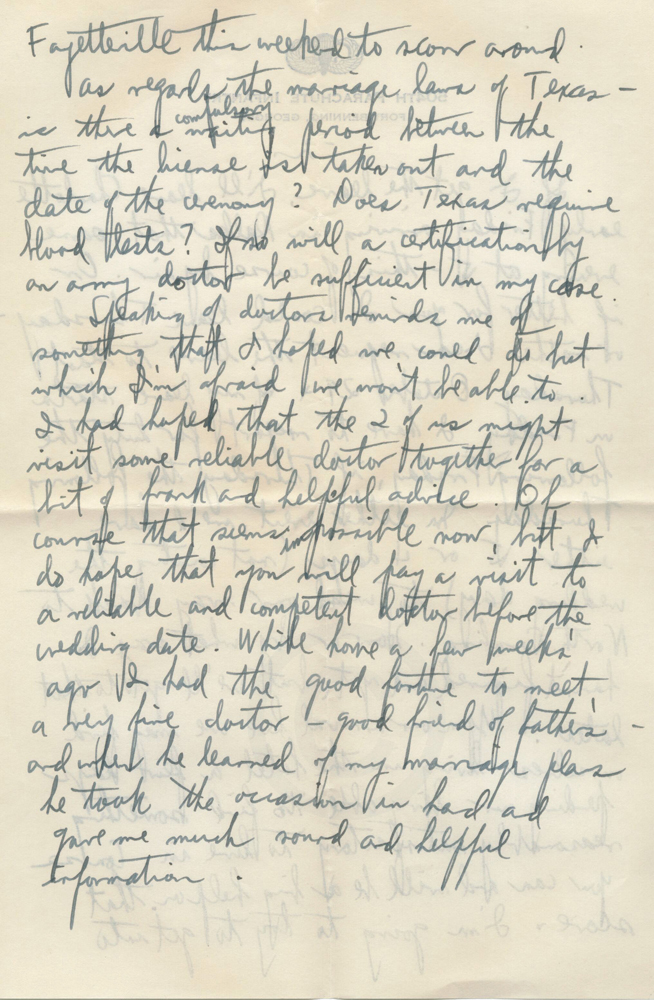 Fayetteville this weekend to scour around.
as regards the marriage laws of Texas —
is there a compulsory waiting period between the
time the license is taken out and the
date of the ceremony? Does Texas require
blood tests? If so will a certification by
an army doctor be sufficient in my case.
Speaking of doctors reminds me of
something that I hoped we could do but
which I'm afraid we won't be able to.
I had hoped that the 2 of us might
visit some reliable doctor together for a
bit of frank and helpful advice. Of
course that seems impossible now, but I
do hope that you will pay a visit to
a reliable and competent doctor before the
wedding date. While home a few weeks
ago I had the good fortune to meet
a very fine doctor — good friend of father's —
and when he learned of my marriage plans
he took the occasion in hand and
gave me much sound and helpful
information.